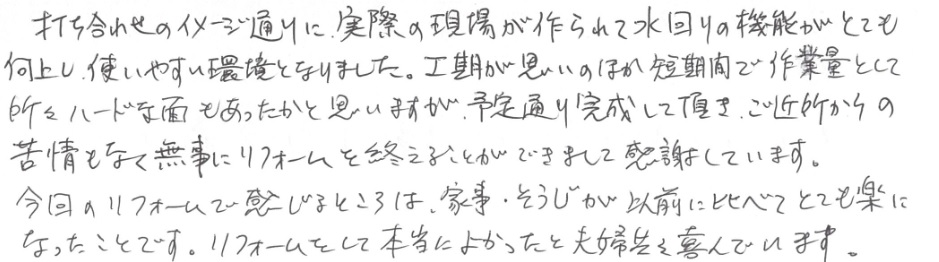 打ち合わせのイメージ通りに、実際の現場が作られて水回りの機能がとても
向上し、使いやすい環境となりました。工期が思いのほか短期間で作業量として
所々ハードな面もあったかと思いますが、予定通り完成して頂き、ご近所からの
苦情もなく無事にリフォームを終えることができまして感謝しています。
今回のリフォームで感じるところは、家事・そうじが以前に比べてとても楽に
なったことです。リフォームをして本当によかったと夫婦共々喜んでいます。